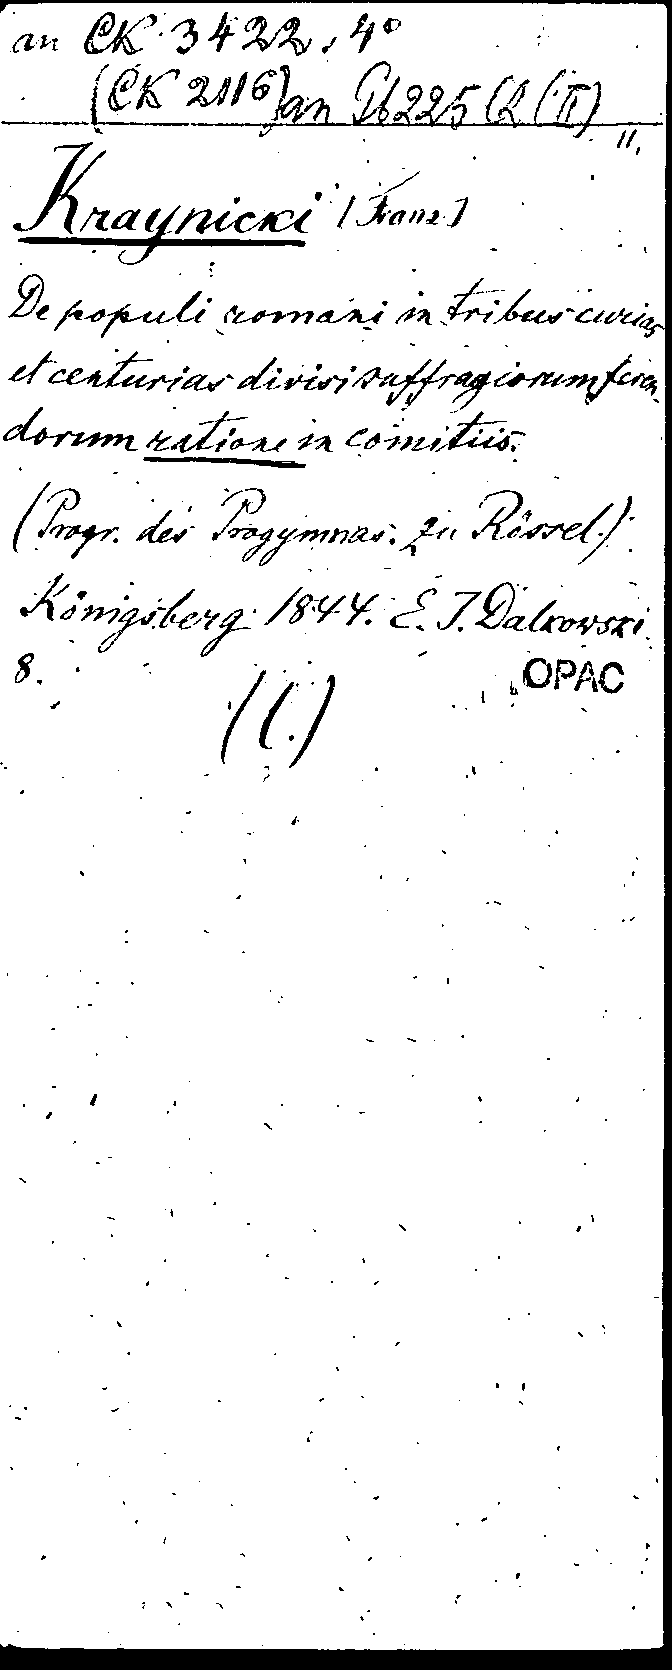 an CK 3422, 4°
(CK 2116) an Gb 225 (2 (II)
11.
Kraynicki [Franz]
De populi romani in tribus curias
et centurias divisi suffragiorum feren-
dorum ratione in comitiis.
(Progr. des Progymnas. zu Rössel.)
Königsberg 1844. E. J. Dalkowski
8.
OPAC